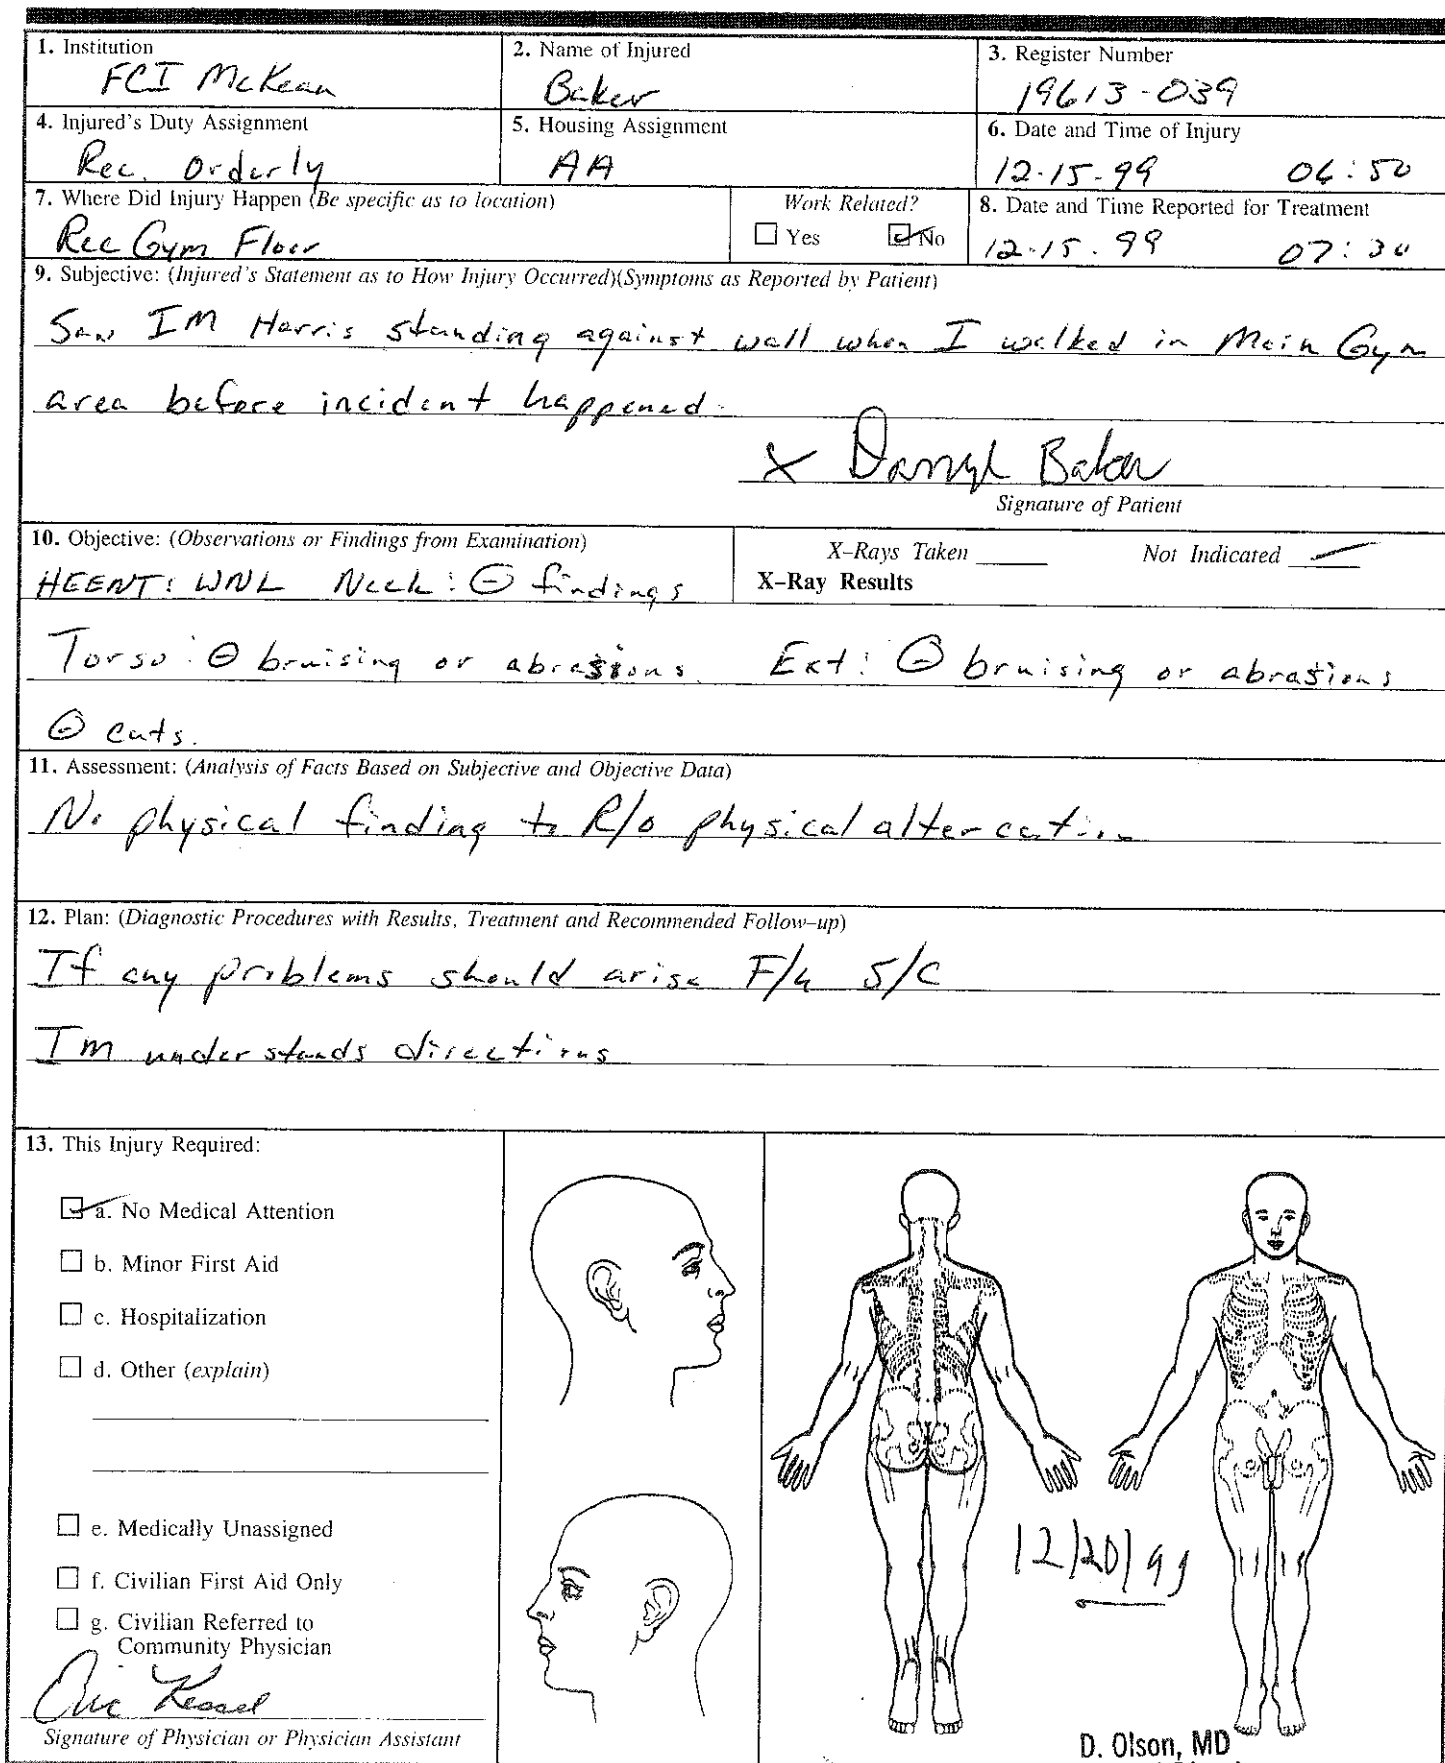 1. Institution
FCI McKean
2. Name of Injured
Baker
3. Register Number
19613-039
4. Injured's Duty Assignment
Rec. Orderly
5. Housing Assignment
AA
6. Date and Time of Injury
12-15-99 06:50
7. Where Did Injury Happen (Be specific as to location)
Rec Gym Floor
Work Related?
Yes No
8. Date and Time Reported for Treatment
12-15-99 07:30
9. Subjective: (Injured's Statement as to How Injury Occurred)(Symptoms as Reported by Patient)
Saw IM Harris standing against wall when I walked in Main Gym
area before incident happened.
X Darryl Baker
Signature of Patient
10. Objective: (Observations or Findings from Examination)
HEENT: WNL Neck: ⊖ findings
X-Rays Taken Not Indicated
X-Ray Results
Torso: ⊖ bruising or abrasions Ext: ⊖ bruising or abrasions
⊖ cuts.
11. Assessment: (Analysis of Facts Based on Subjective and Objective Data)
No physical finding to R/o physical altercation
12. Plan: (Diagnostic Procedures with Results, Treatment and Recommended Follow-up)
If any problems should arise F/u S/C
IM understands directions
13. This Injury Required:
a. No Medical Attention
b. Minor First Aid
c. Hospitalization
d. Other (explain)
e. Medically Unassigned
f. Civilian First Aid Only
g. Civilian Referred to
Community Physician
Eric Kessel
Signature of Physician or Physician Assistant
12/20/99
D. Olson, MD